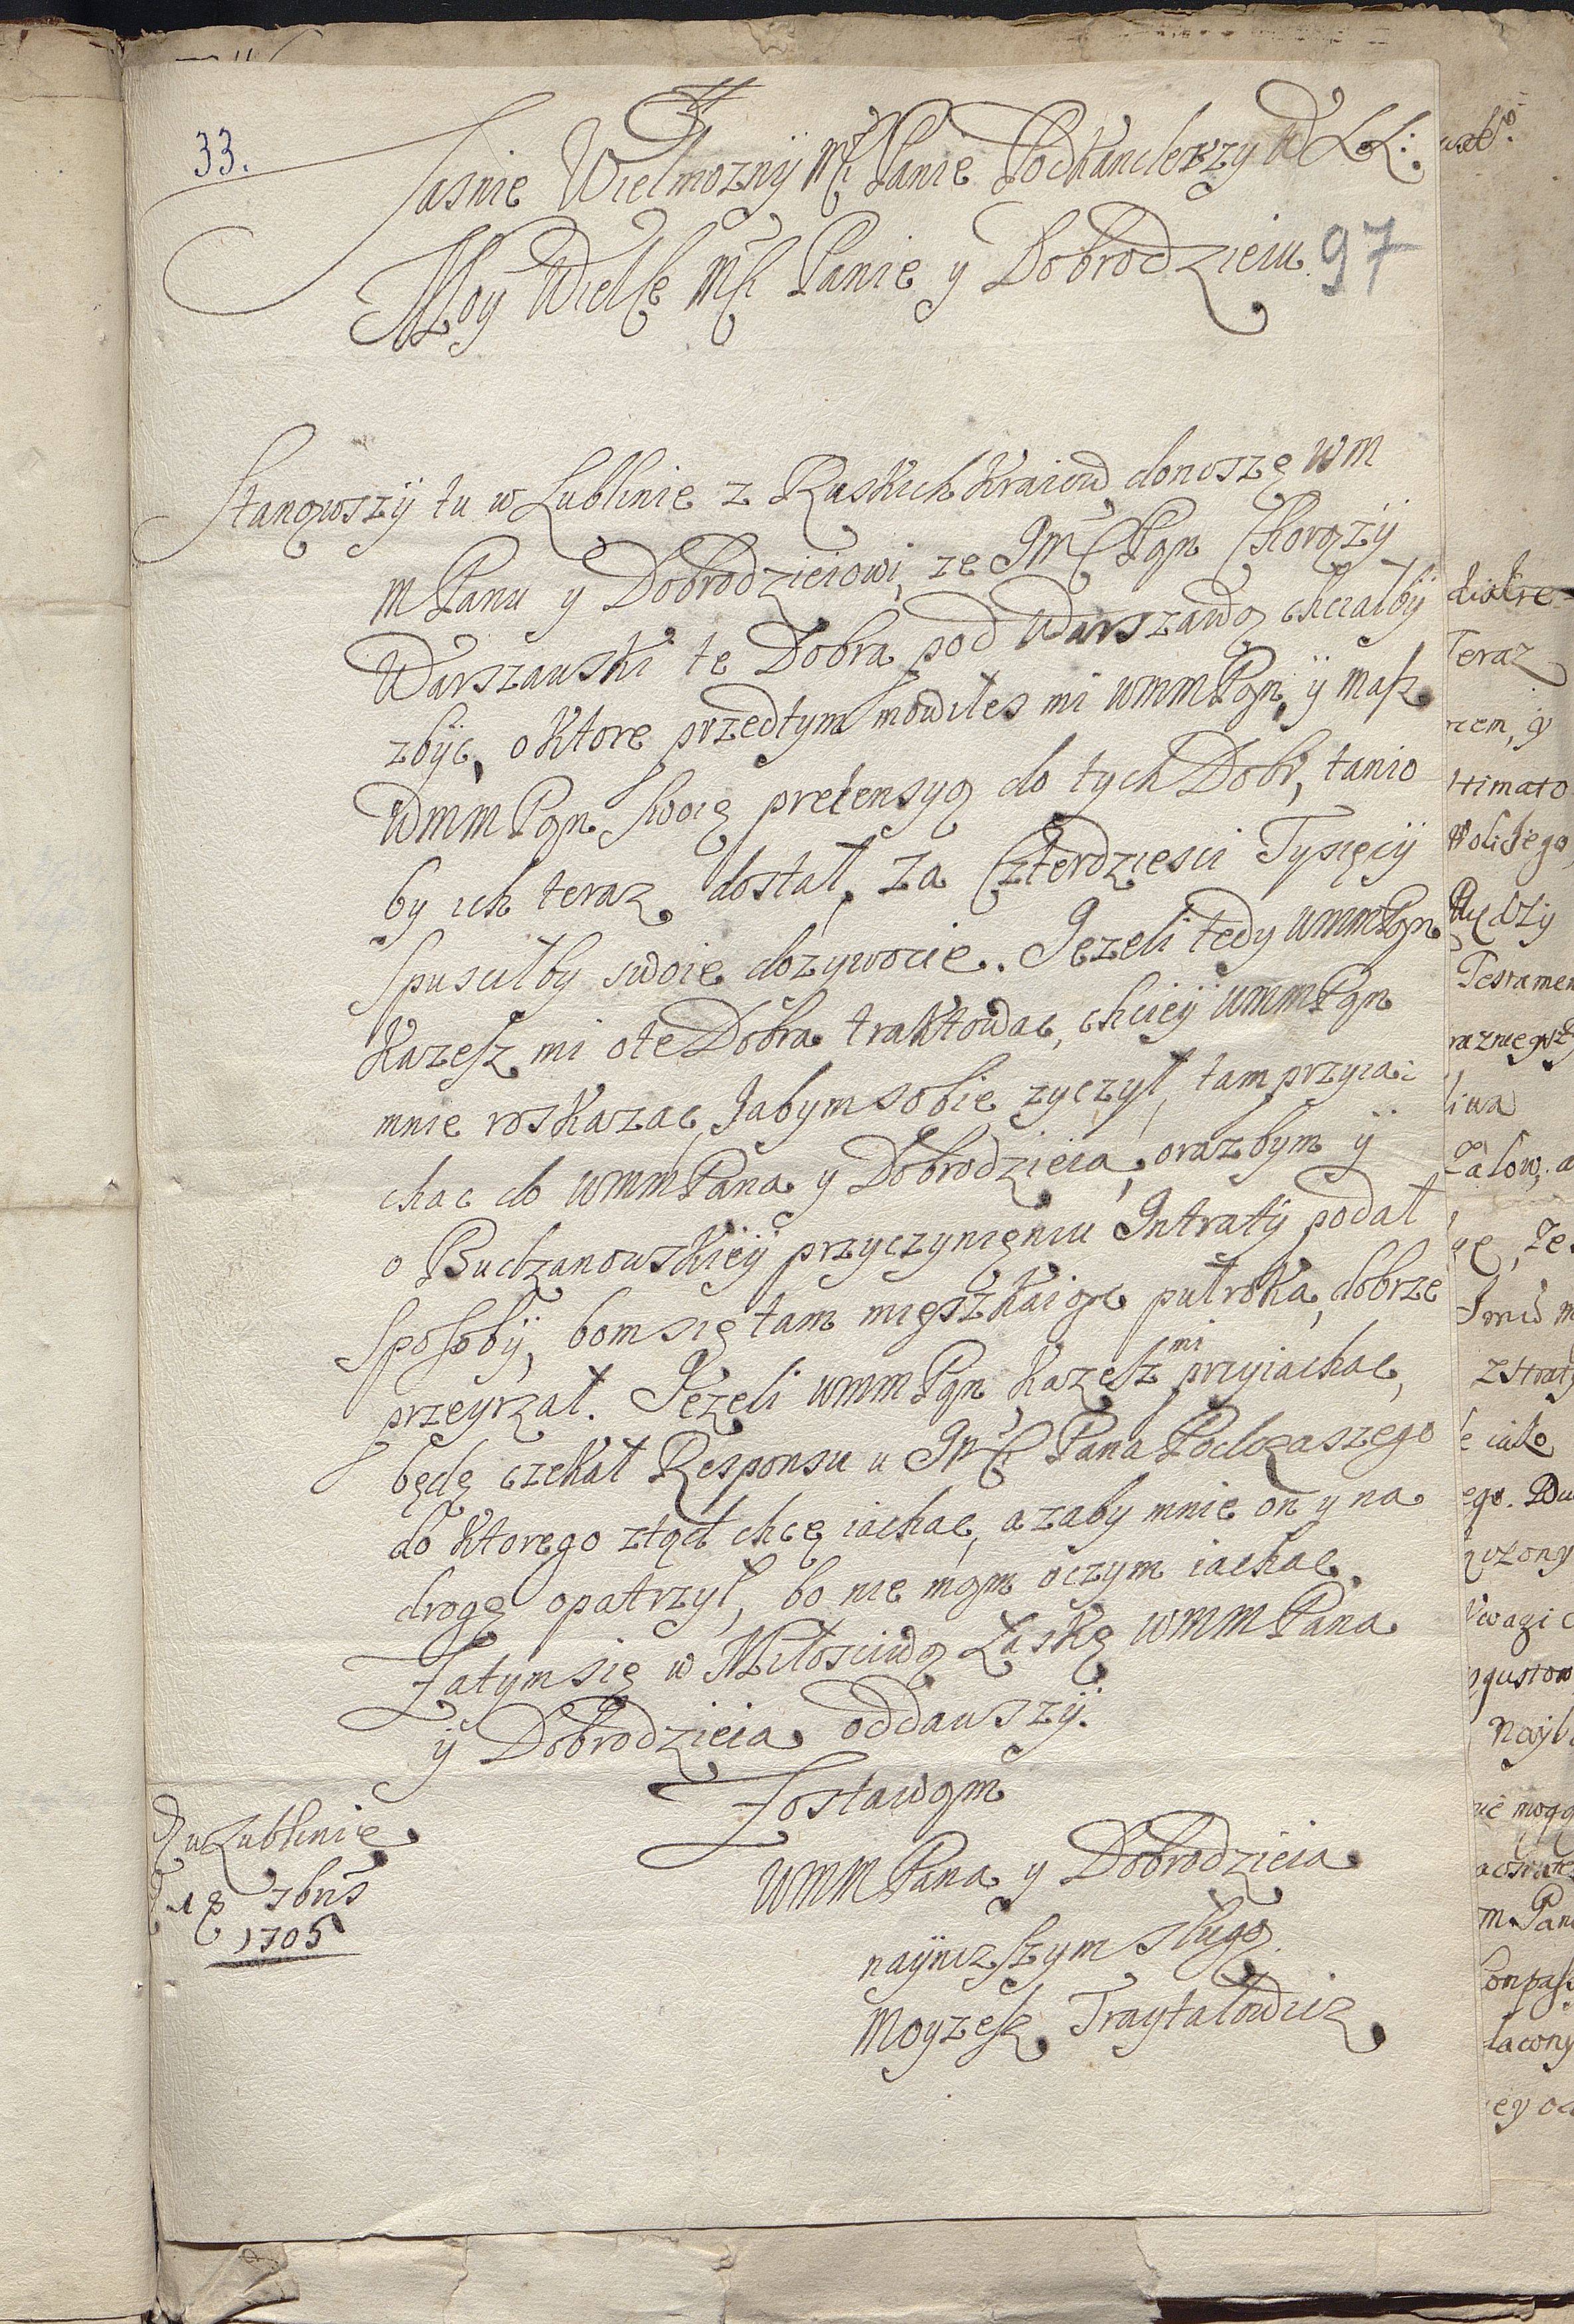 33.
Jasnie Wielmozny Mći Panie Podkanclerzy W L L:
Moy Wielce Mći Panie y Dobrodzieiu
97
Stanąwszÿ tu w Lublinie z Ruskich Kraiow donoszę WM
M Panu y Dobrodzieiowi, ze JMć Pąn Chorązÿ
Warszawski te Dobra pod Warszawą chciałbÿ
zbÿc, o Ktore przedtym mowiłes mi WMM Pąn, ÿ masz
WMM Pąn swoię pretensyą do tych Dobr, tanio
by ich teraz dostał, za Czterdziesci Tysięcÿ
spusciłby swoie dozywocie. Jezeli tedy WMM Pąn
Kazesz mi o te Dobra traktowac, chcieÿ WMM Pąn
mnie roskazac, Jabym sobie zyczył, tam przyia
chac do WMM Pana y Dobrodzieia, orazbym ÿ
o Budzanowskieÿ przyczynięniu Intratÿ podał
sposobÿ, bom się tam mięszkaiąc pułroka, dobrze
przeyrzał. Jezeli WMM Pąn Kazesz mi przyiachac,
będę czekał Responsu u JMći Pana Podczaszego
do Ktorego ztąd chcę iachac, azaby mnie on y na
drogę opatrzył, bo nie mąm oczym iachac.
Zatym się w Miłosciwą Łaskę WMM Pana
ÿ Dobrodzieia oddawszÿ.
Zostawąm
WMM Pana y Dobrodzieia
naÿnizszym sługą
Moyzesz Traytałowicz
w Lublinie
18 7bris
1705